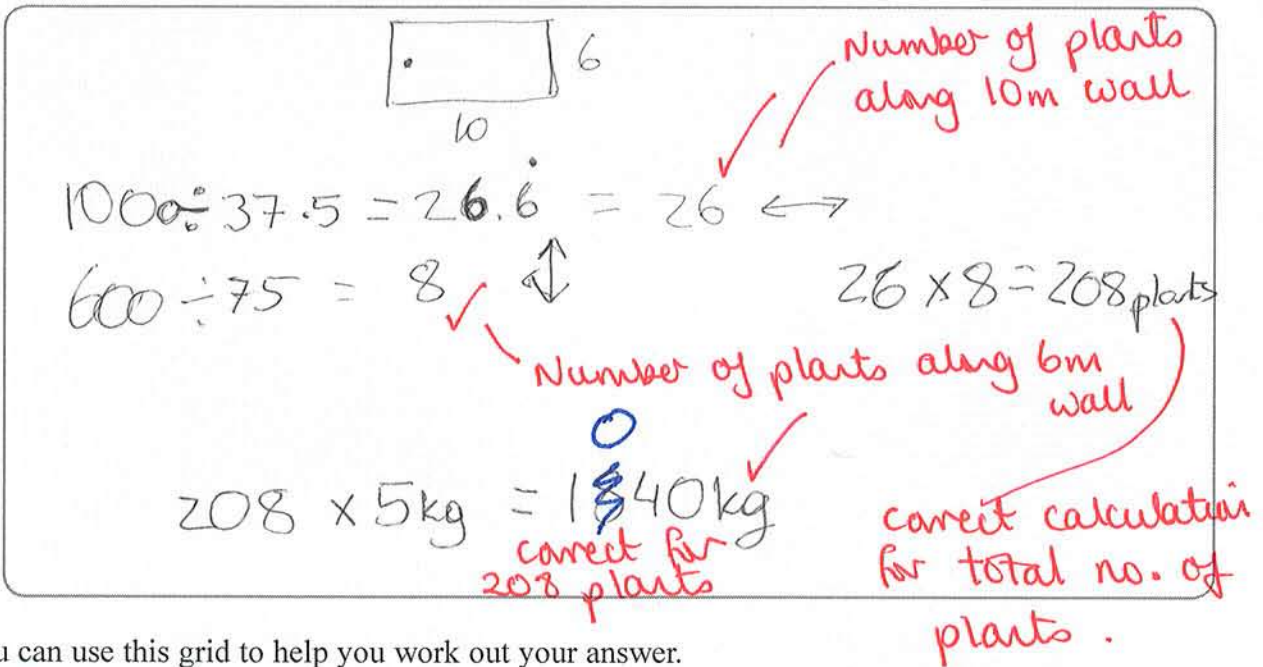 6
10
Number of plants
along 10m wall
1000 ÷ 37.5 = 26.6̇ = 26 ↔
600 ÷ 75 = 8 ↕
26 × 8 = 208 plants
Number of plants along 6m
wall
0
208 × 5kg = 1840kg
correct for
208 plants
correct calculation
for total no. of
plants.
u can use this grid to help you work out your answer.